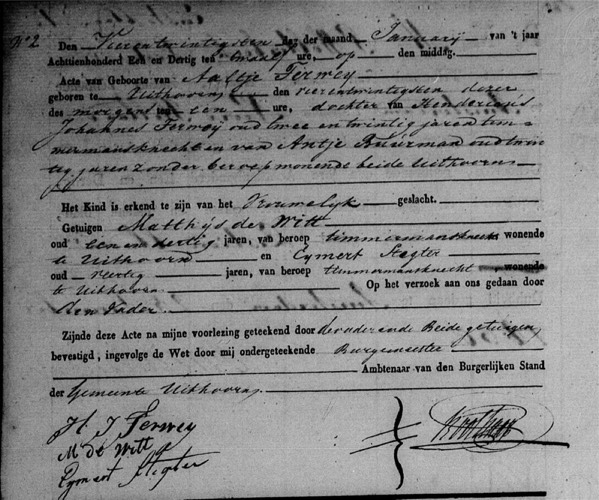 N° 2
Den Vierentwintigsten dag der maand Januarij van 't jaar
Achttienhonderd Een en Dertig ten twaalf ure, op den middag.
Acte van Geboorte van Aaltje Terweij
geboren te Uithoorn den vierentwintigsten dezer
des morgens ten een ure, dochter van Hendericus
Johannes Terweij oud twee en twintig jaren tim-
mermansknecht en van Antje Buurman oud twin-
tig jaren zonder beroep wonende beide Uithoorn
Het Kind is erkend te zijn van het Vrouwelyk geslacht.
Getuigen Matthijs de Witt
oud een en dertig jaren, van beroep timmermansknecht wonende
te Uithoorn en Eymert Stegter
oud veertig jaren, van beroep timmermansknecht wonende
te Uithoorn Op het verzoek aan ons gedaan door
den Vader.
Zijnde deze Acte na mijne voorlezing geteekend door de vader en de Beide getuigen
bevestigd, ingevolge de Wet door mij ondergeteekende Burgemeester
Ambtenaar van den Burgerlijken Stand
der Gemeente Uithoorn
H. J Terweij
M de Witt
Eymert Stegter